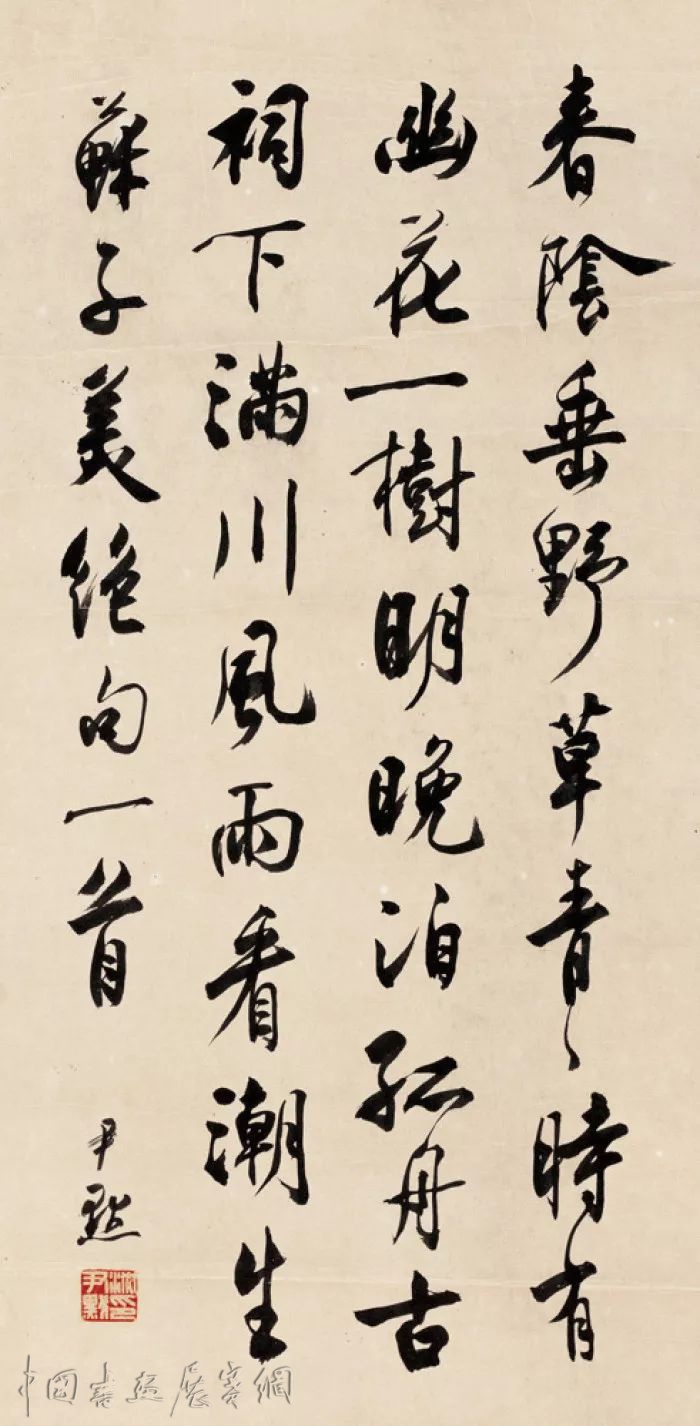 春陰垂野草青〻時有
幽花一樹明晚泊孤舟古
祠下滿川風雨看潮生
蘇子美絕句一首
尹默
沈尹默印
中國書法展賽網